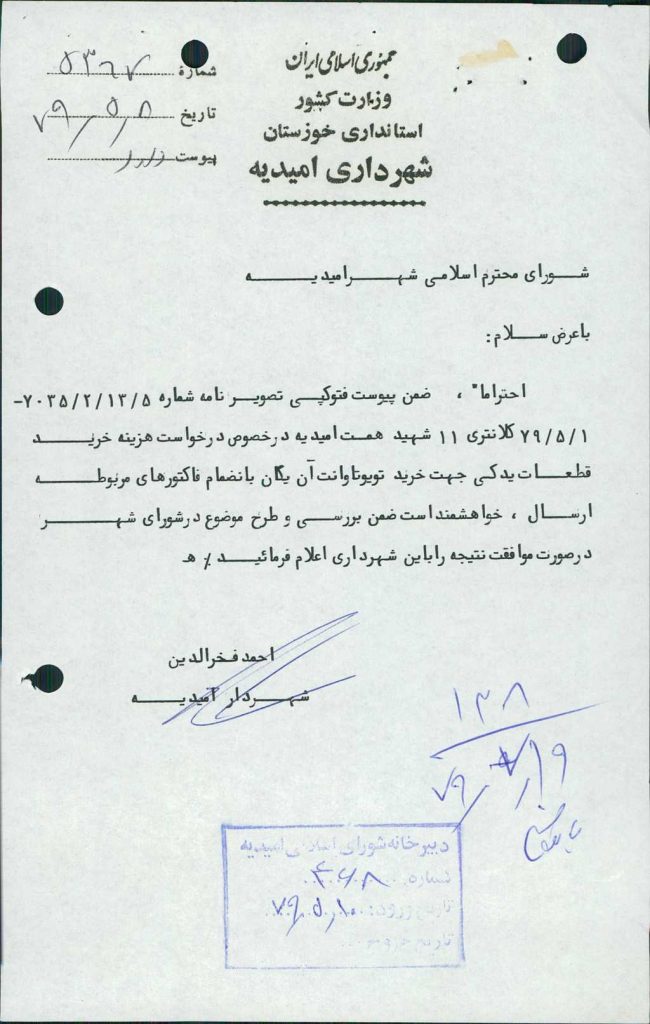 جمهوری اسلامی ایران
وزارت کشور
استانداری خوزستان
شهرداری امیدیه
شماره ۵۳۶۷
تاریخ ۷۹/۵/۸
پیوست دارد
شورای محترم اسلامی شهر امیدیه
باعرض سلام:
احتراما" ، ضمن پیوست فتوکپی تصویر نامه شماره ۷۰۳۵/۲/۱۳/۵-
۷۹/۵/۱ کلانتری ۱۱ شهید همت امیدیه درخصوص درخواست هزینه خرید
قطعات یدکی جهت خرید تویوتاوانت آن یگان بانضمام فاکتورهای مربوطه
ارسال ، خواهشمنداست ضمن بررسی و طرح موضوع درشورای شهر
درصورت موافقت نتیجه راباین شهرداری اعلام فرمائید ٪ ه
احمد فخرالدین
شهردار امیدیه
۱۳۸
دبیرخانه شورای اسلامی امیدیه
شماره
تاریخ ورود: ۷۹/۵/۱۰
تاریخ خروج